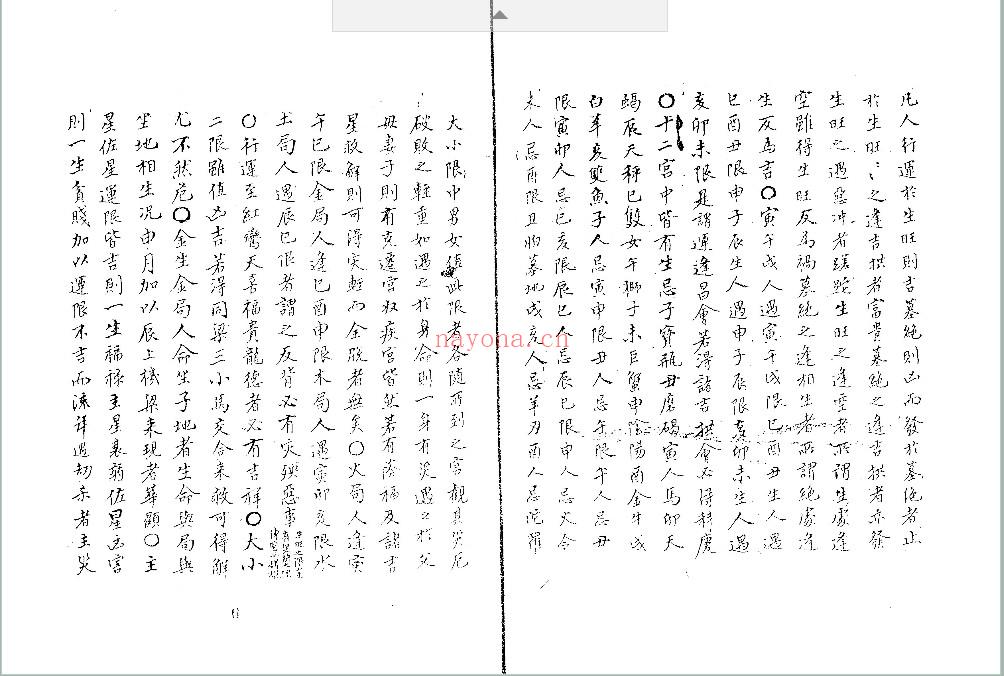 凡人行運於生旺則吉墓絶則凶而發於墓絶者正
於生旺〻之逢吉拱者富貴墓絶之逢吉拱者亦發
生旺之遇惡冲者蹉跎生旺之逢空者所謂生處逢
空雖得生旺反為禍墓絶之逢相生者所謂絶處逢
生反為吉〇寅午戌人遇寅午戌限巳酉丑生人遇
巳酉丑限申子辰生人遇申子辰限亥卯未生人遇
亥卯未限是謂運逢昌會若得諸吉拱會必得科慶
〇十二宮中皆有生忌子寶瓶丑磨碣寅人馬卯天
蝎辰天秤巳雙女午獅子未巨蟹申陰陽酉金牛戌
白羊亥雙魚子人忌寅申限丑人忌午限午人忌丑
限寅卯人忌巳亥限辰巳人忌辰巳限申人忌火令
未人忌酉限丑為墓地戌亥人忌羊刃酉人忌陀羅
大小限中男女值此限者各隨所到之宮觀其災厄
破敗之輕重如遇之於身命則一身有災遇之於父
母妻子則有尅遷宮奴疾宮皆然若有陰福及諸吉
星救解則可得災輕而全脫者無矣〇火局人逢寅
午巳限金局人逢巳酉申限木局人遇寅卯亥限水
土局人遇辰巳限者謂之反背必有災殃惡事
〇行運至紅鸞天喜福貴龍德者必有吉祥〇大小
二限雖值凶吉若得同梁三小馬交合來救可得解
尤不然危〇金生金局人命生子地者生命與局與
坐地相生況申月加以辰上機梁來現者華顯〇主
星佐星運限皆吉則一生福祿主星衰弱佐星凶宮
則一生貧賤加以運限不吉而流祥遇劫杀者主災
6
nayona.cn